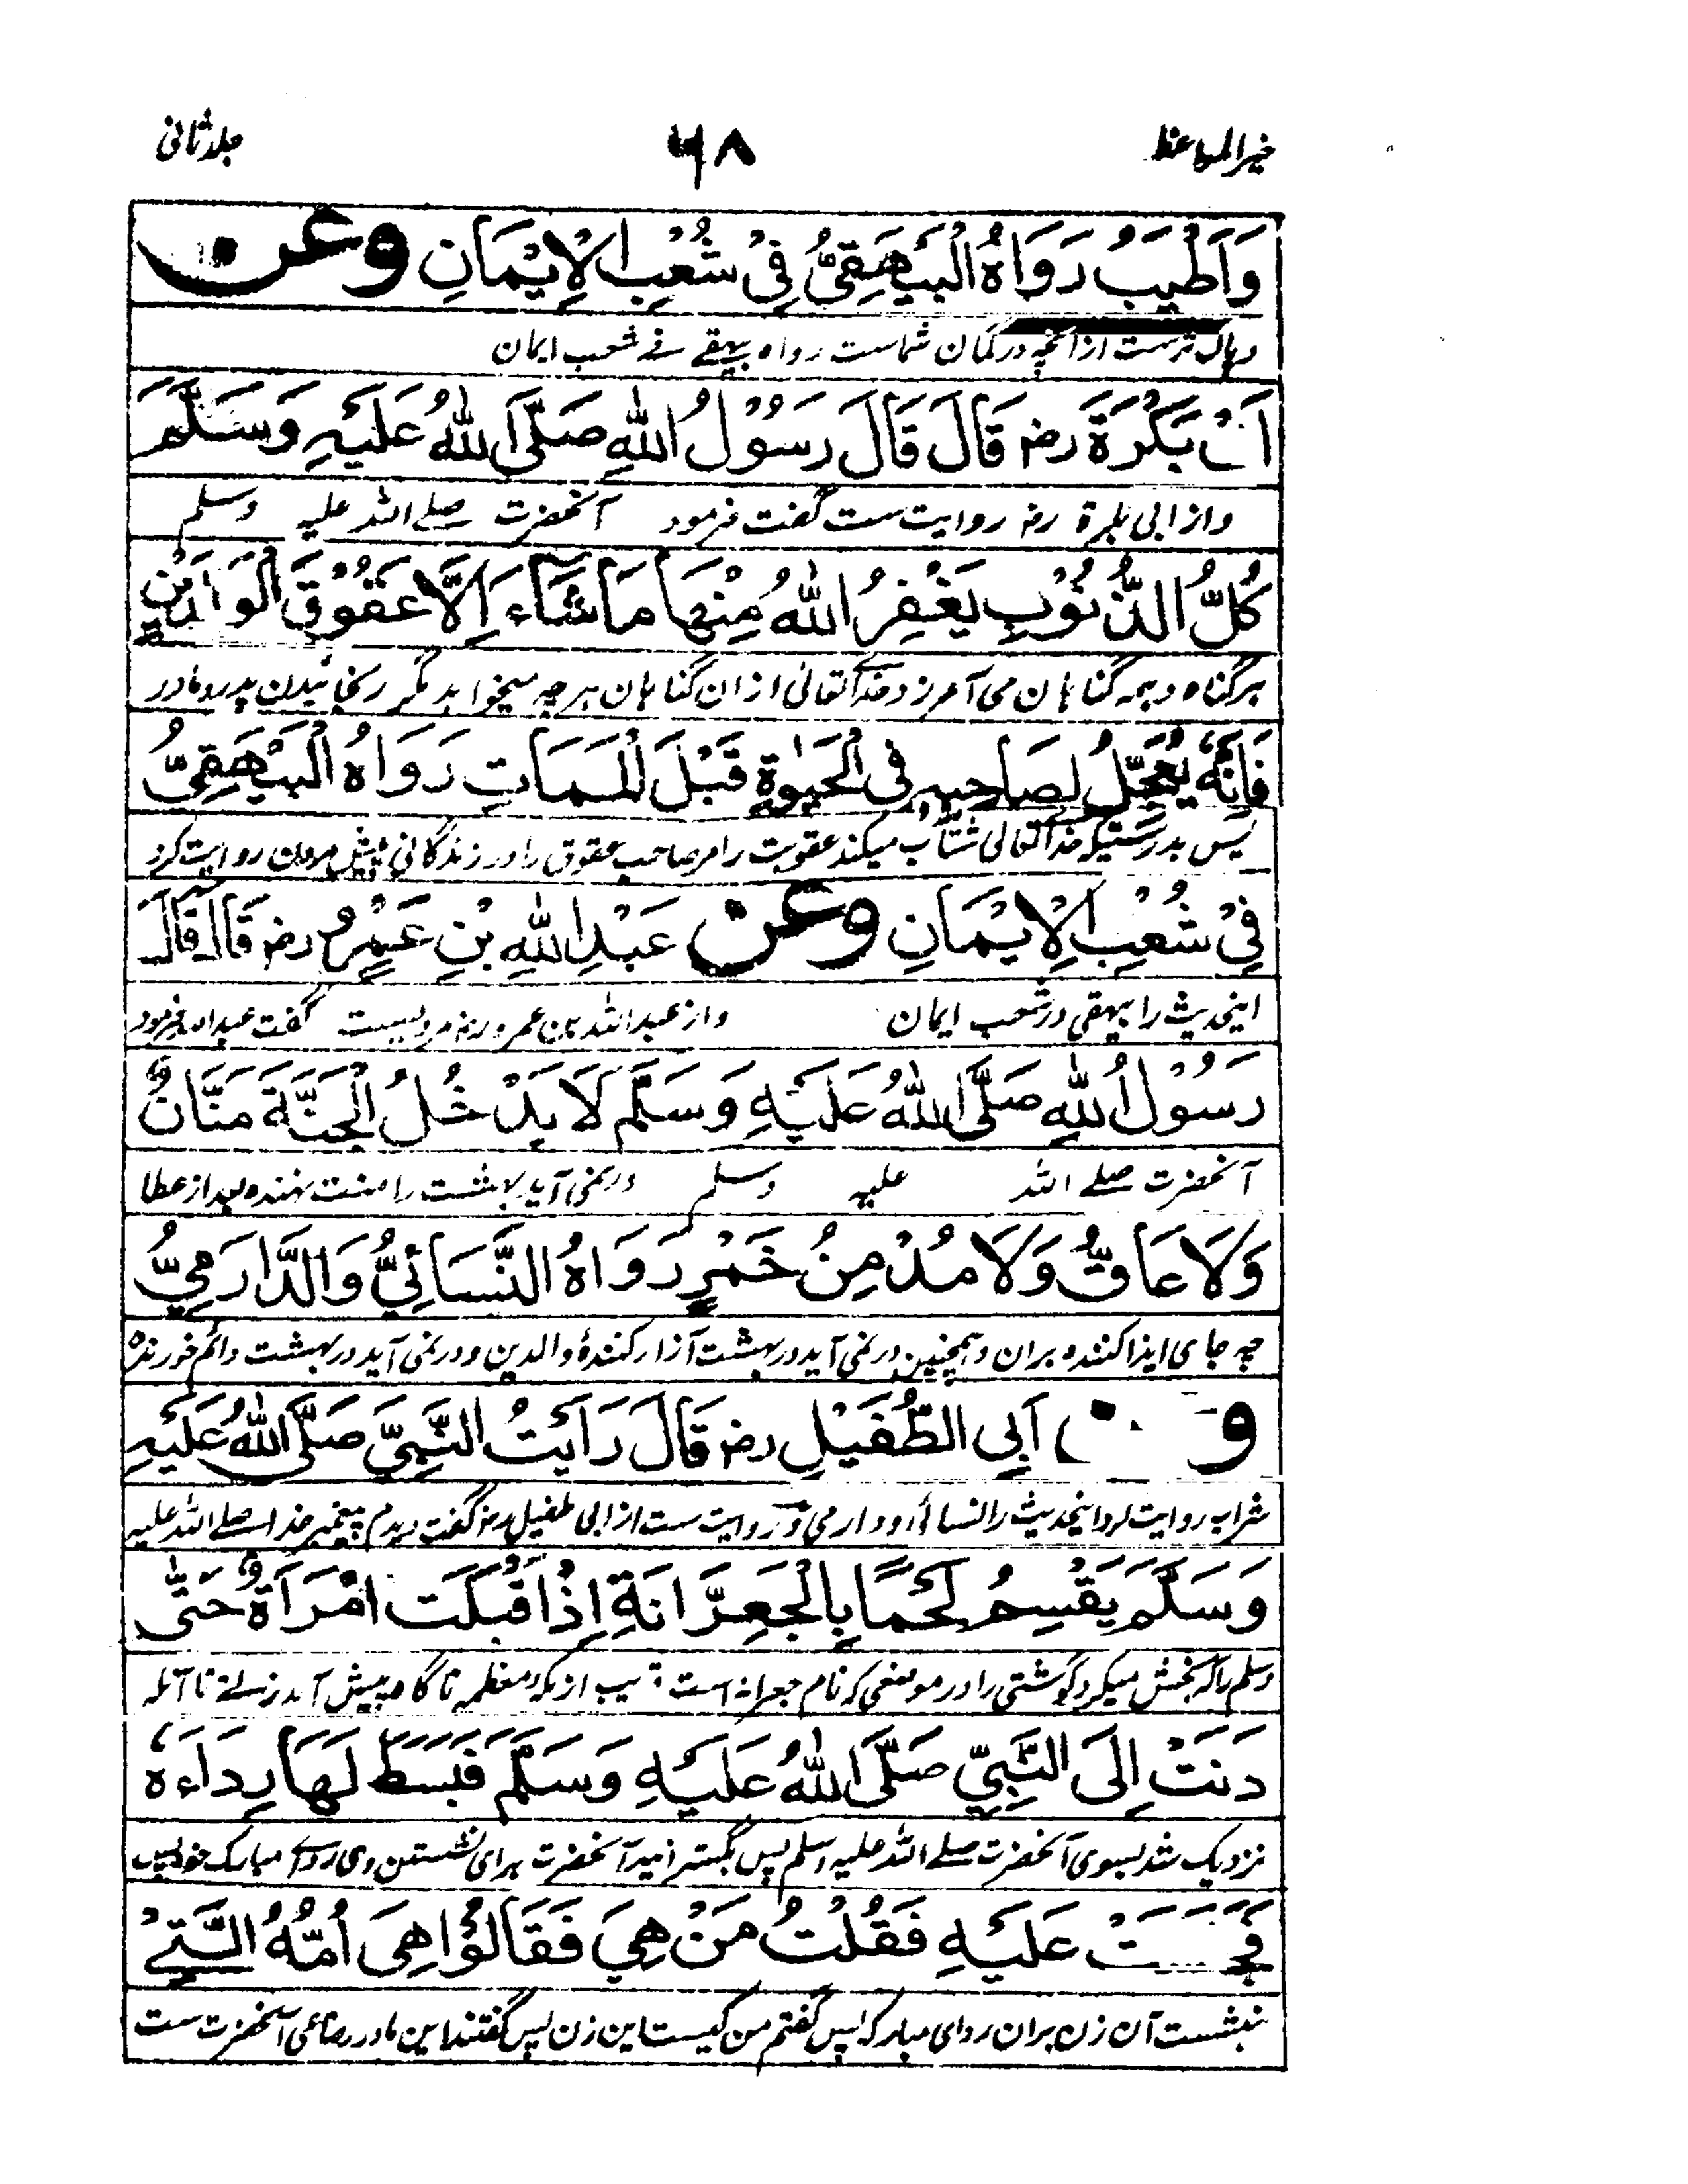 خیرالمواعظ ۶۸ جلد ثانی
وَاَطْيَبُ رَوَاهُ الْبَيْهَقِيُّ فِيْ شُعَبِ الْاِيْمَانِ وعن
و پاک ترست از آنچه در گمان شماست رواه بیهقے فے شعب ایمان
اَبِيْ بَكْرَةَ رضہ قَالَ قَالَ رَسُوْلُ اللهِ صَلَّى اللهُ عَلَيْهِ وَسَلَّمَ
و از ابی بکرة رضہ روایت ست گفت فرمود آنحضرت صلے اللہ علیہ وسلم
كُلُّ الذُّنُوْبِ يَغْفِرُ اللهُ مِنْهَا مَا شَاءَ اِلَّا عُقُوْقَ الْوَالِدَيْنِ
هر گناه و همه گناهان می آمرزد خدایتعالی از ان گناهان هر چه میخواهد مگر رنجانیدن پدر و مادر
فَاِنَّهٗ يُعَجِّلُ لِصَاحِبِهٖ فِى الْحَيٰوةِ قَبْلَ الْمَمَاتِ رَوَاهُ الْبَيْهَقِيُّ
پس بدرستیکه خدا تعالی شتاب میکند عقوبت را مر صاحب عقوق را در زندگانی پیش مردن روایت کرد
فِيْ شُعَبِ الْاِيْمَانِ وعن عَبْدِ اللهِ بْنِ عَمْرٍو رضہ قَالَ قَالَ
اینحدیث را بیهقی در شعب ایمان و از عبد الله بن عمرو رضہ مرویست گفت عبدالله فرمود
رَسُوْلُ اللهِ صَلَّى اللهُ عَلَيْهِ وَسَلَّمَ لَا يَدْخُلُ الْجَنَّةَ مَنَّانٌ
آنحضرت صلے اللہ علیہ وسلم در نمی آید بهشت را منت نهنده بعد از عطا
وَلَا عَاقٌّ وَلَا مُدْمِنُ خَمْرٍ رَوَاهُ النَّسَائِيُّ وَالدَّارَمِيُّ
چه جای ایذا کننده بران و همچنین در نمی آید در بهشت آزار کنندهٔ والدین و در نمی آید در بهشت دائم خورنده
و اَبِي الطُّفَيْلِ رضہ قَالَ رَاَيْتُ النَّبِيَّ صَلَّى اللهُ عَلَيْهِ
شراب روایت کرد اینحدیث را نسائی و دارمی و روایت ست از ابی طفیل رضہ گفت دیدم پیغمبر خدا صلے اللہ علیہ
وَسَلَّمَ يَقْسِمُ لَحْمًا بِالْجَعِرَّانَةِ اِذْ اَقْبَلَتْ امْرَاَةٌ حَتّٰى
وسلم را که بخش میکرد گوشتی را در موضعی که نام جعرانه است قریب از مکه معظمه ناگاه پیش آمد زنے تا آنکه
دَنَتْ اِلَى النَّبِيِّ صَلَّى اللهُ عَلَيْهِ وَسَلَّمَ فَبَسَطَ لَهَا رِدَاءَهٗ
نزدیک شد بسوی آنحضرت صلے اللہ علیہ وسلم پس بگسترانید آنحضرت برای نشستن وی ردای مبارک خود پس
فَجَلَسَتْ عَلَيْهِ فَقُلْتُ مَنْ هِيَ فَقَالُوْا هِيَ اُمُّهُ الَّتِيْ
بنشست آن زن بران ردای مبارک پس گفتم من کیست این زن پس گفتند این مادر رضاعی آنحضرت ست